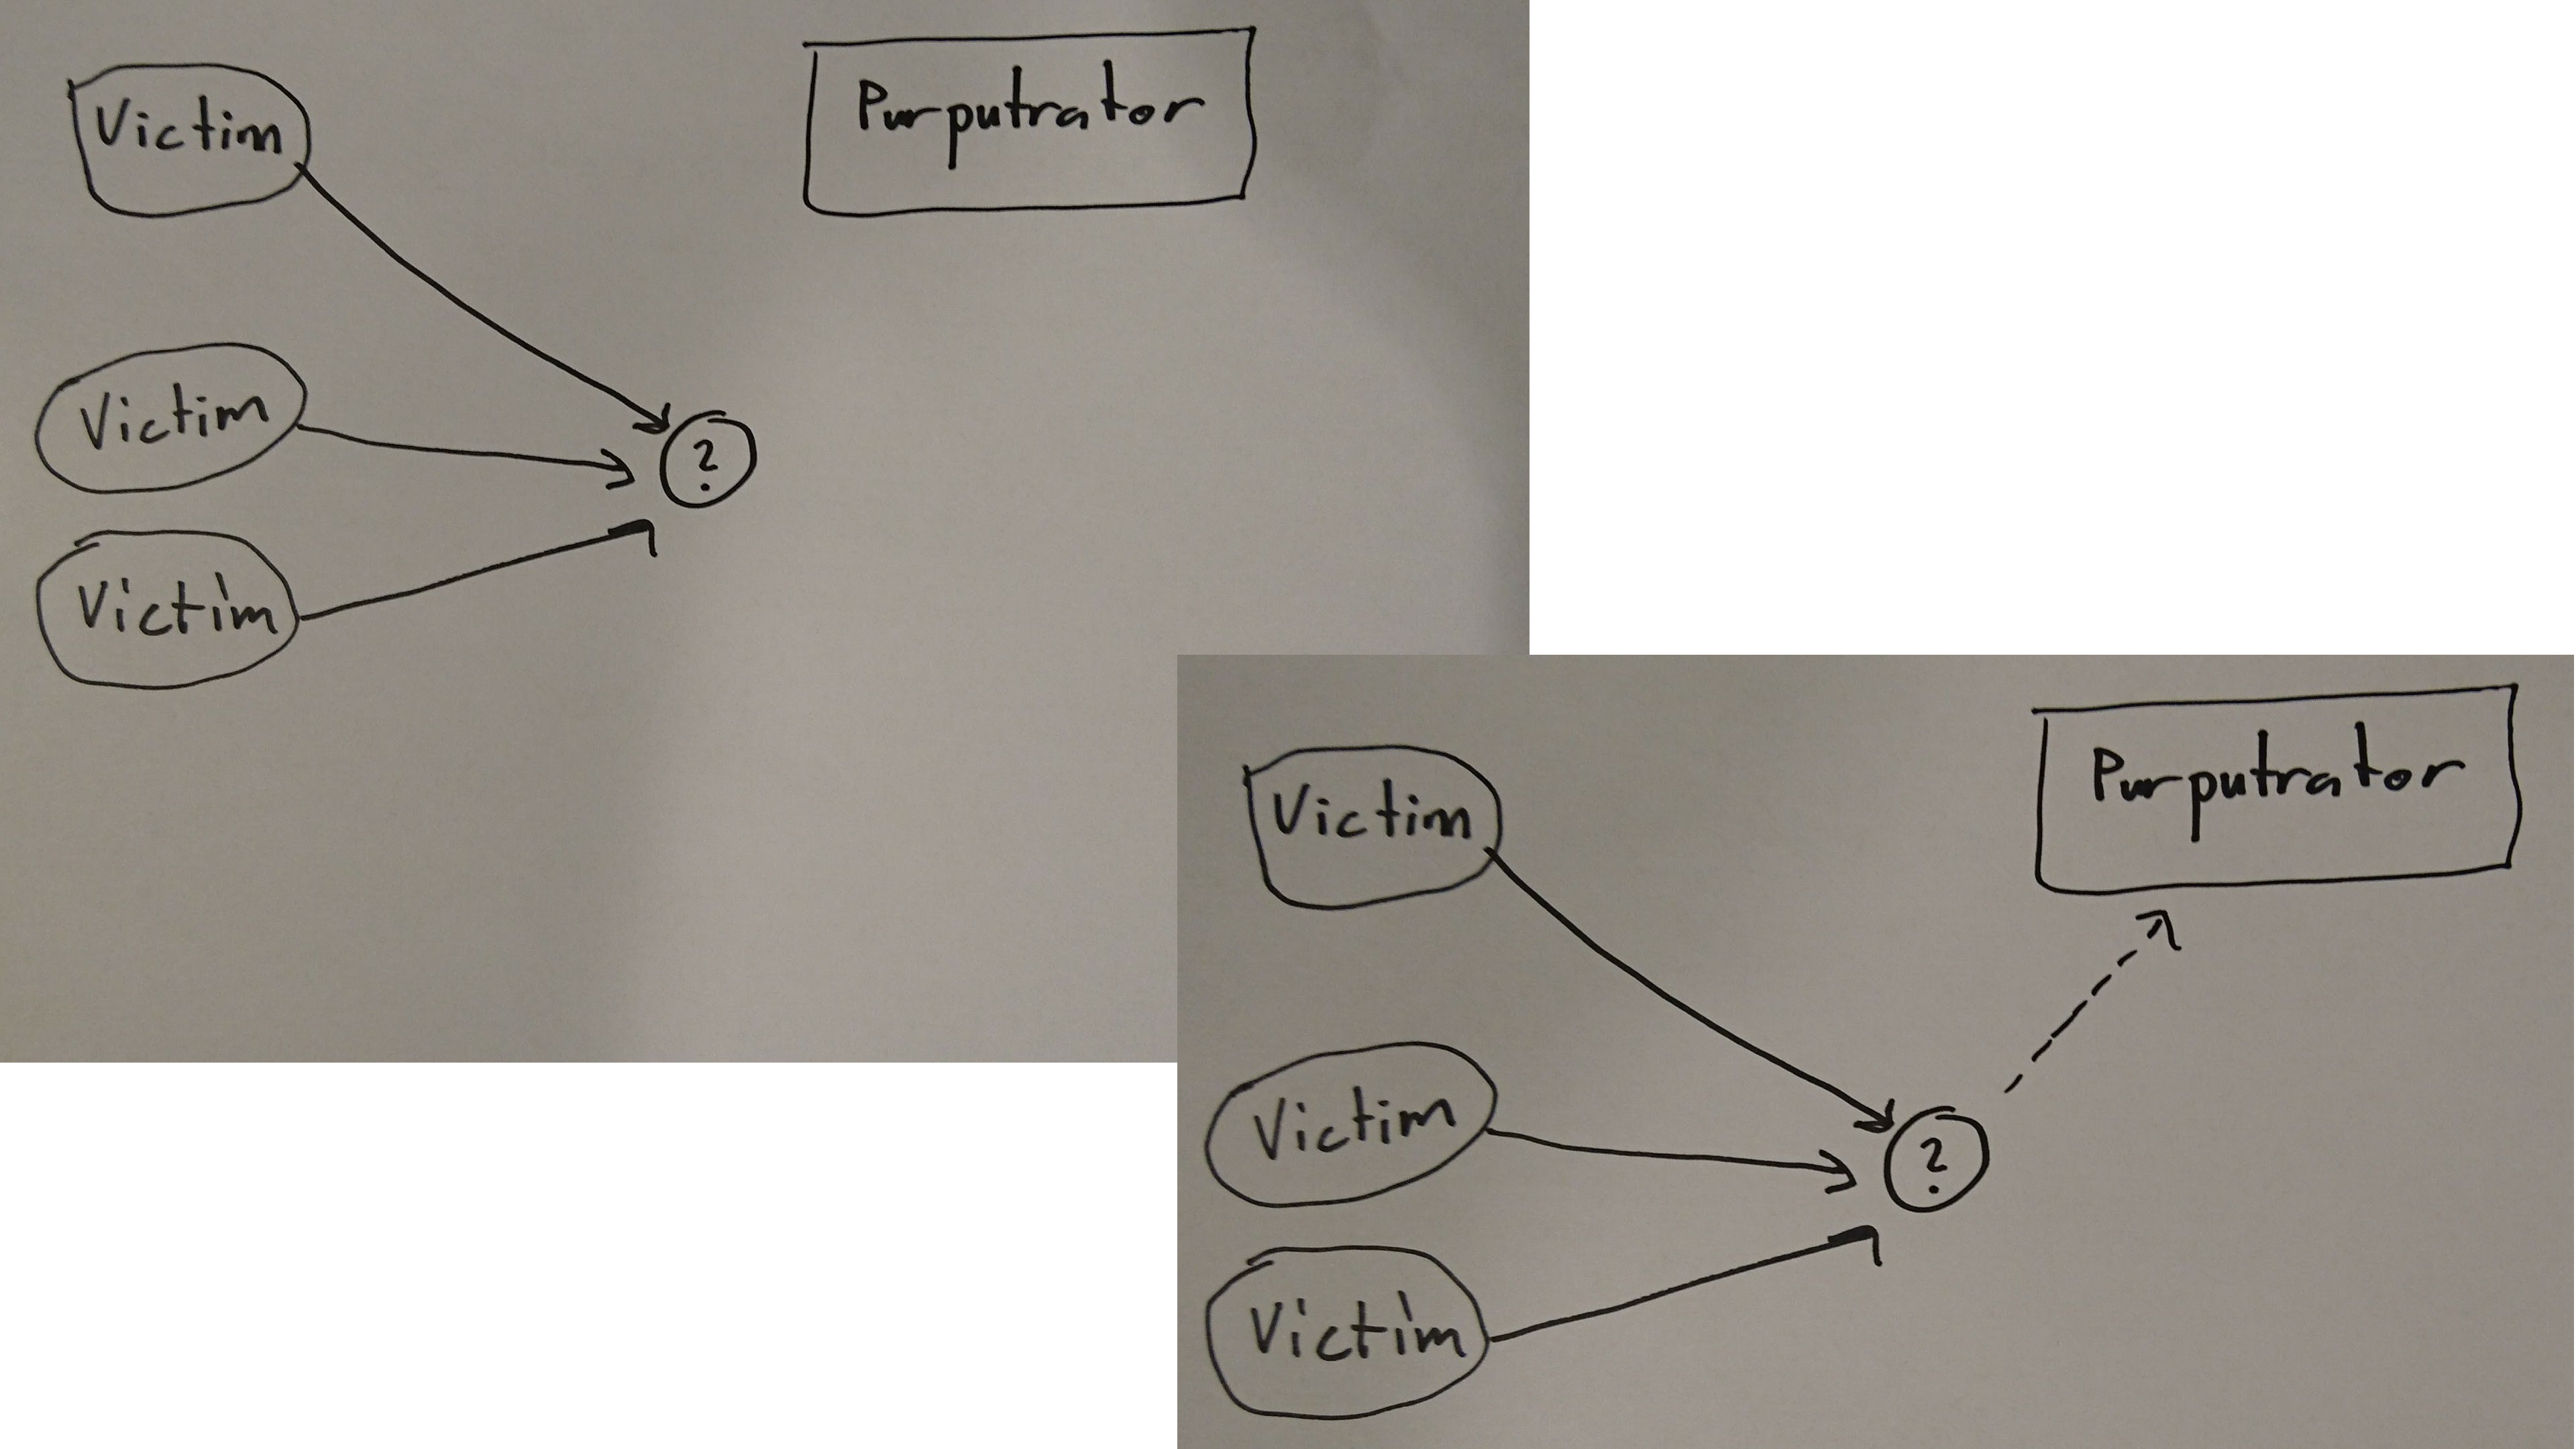 Victim
Purputrator
Victim
?
Victim
Victim
Purputrator
Victim
?
Victim